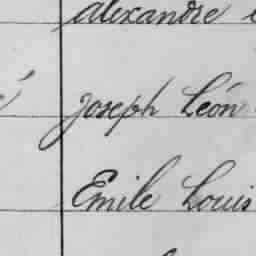 alexandre
Joseph Léon
Emile Louis